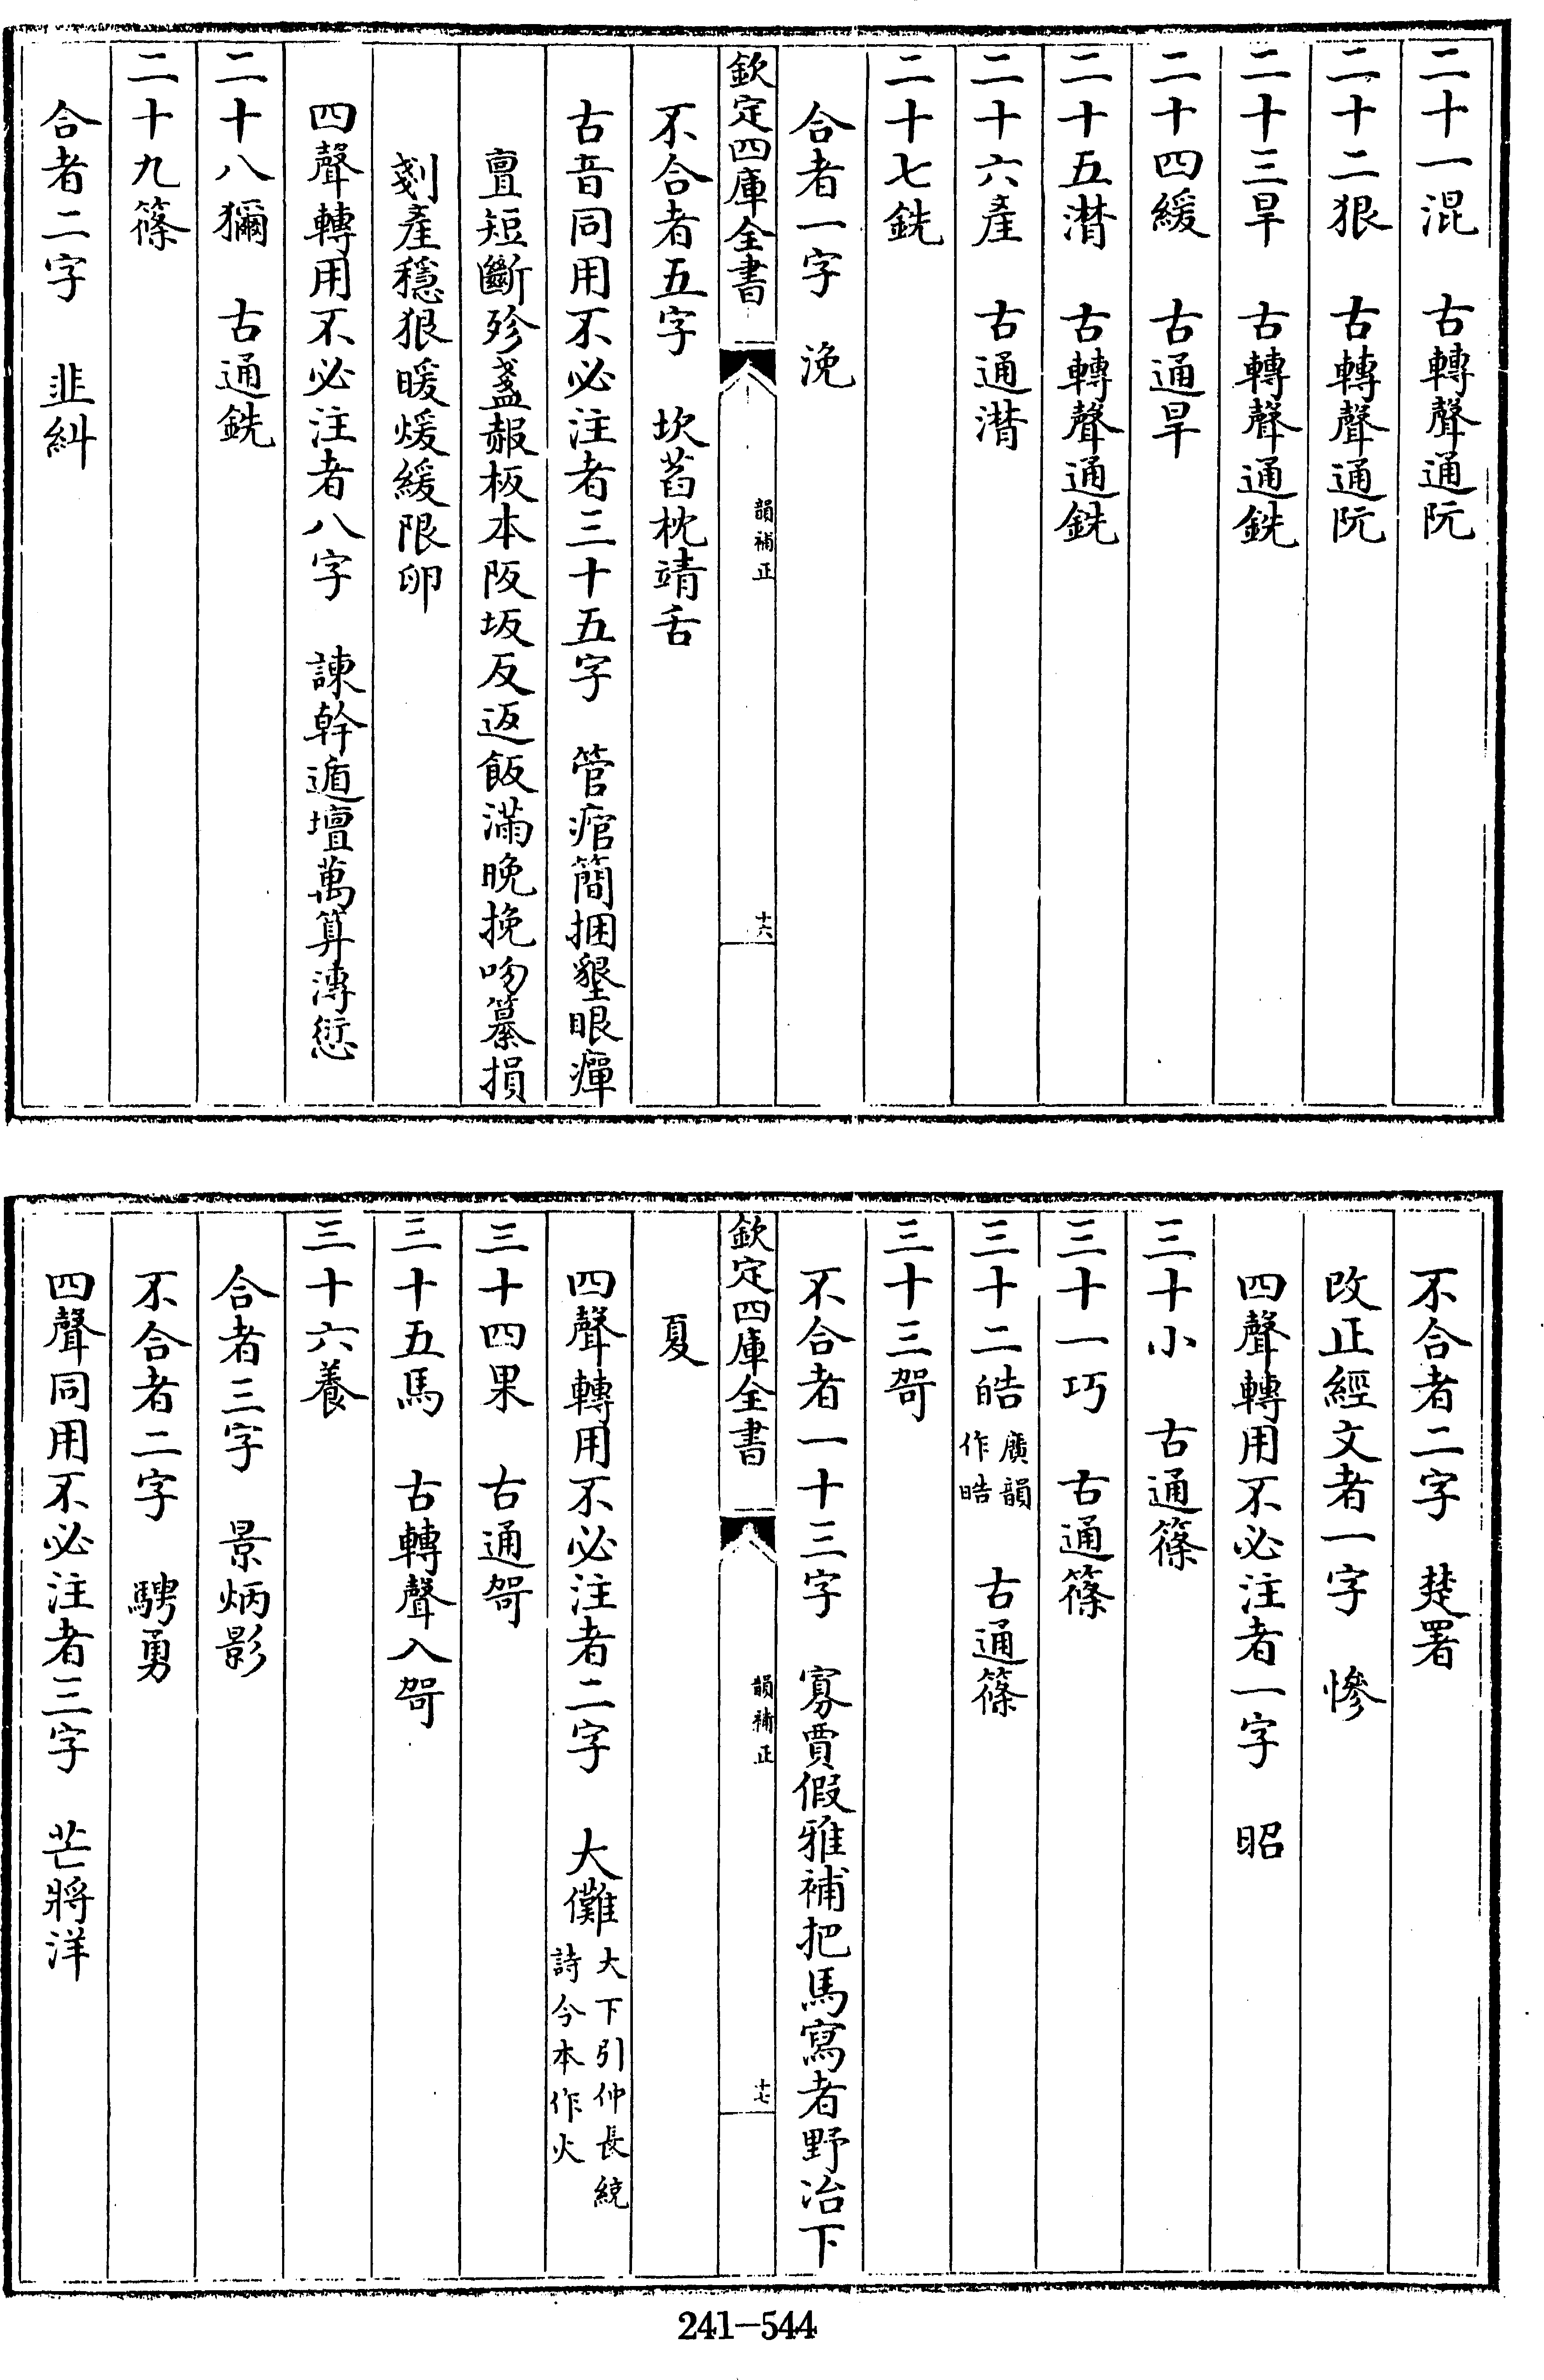 二十一混　古轉聲通阮
二十二狠　古轉聲通阮
二十三旱　古轉聲通銑
二十四緩　古通旱
二十五潸　古轉聲通銑
二十六產　古通潸
二十七銑
合者一字　浼
欽定四庫全書　韻補正　十六
不合者五字　坎萏枕靖舌
古音同用不必注者三十五字　管痯簡捆墾眼癉
亶短斷殄盞赧板本阪坂反返飯滿晚挽吻纂損
剗產穩狠暖煖緩限卵
四聲轉用不必注者八字　諫幹遁壇萬算漙愆
二十八獮　古通銑
二十九篠
合者二字　韭糾
不合者二字　楚署
改正經文者一字　慘
四聲轉用不必注者一字　昭
三十小　古通篠
三十一巧　古通篠
三十二皓　廣韻作晧　古通篠
三十三哿
不合者一十三字　寡賈假雅補把馬寫者野冶下
欽定四庫全書　韻補正　十七
夏
四聲轉用不必注者二字　大儺　大下引仲長統詩今本作火
三十四果　古通哿
三十五馬　古轉聲入哿
三十六養
合者三字　景炳影
不合者二字　騁勇
四聲同用不必注者三字　芒將洋
241-544